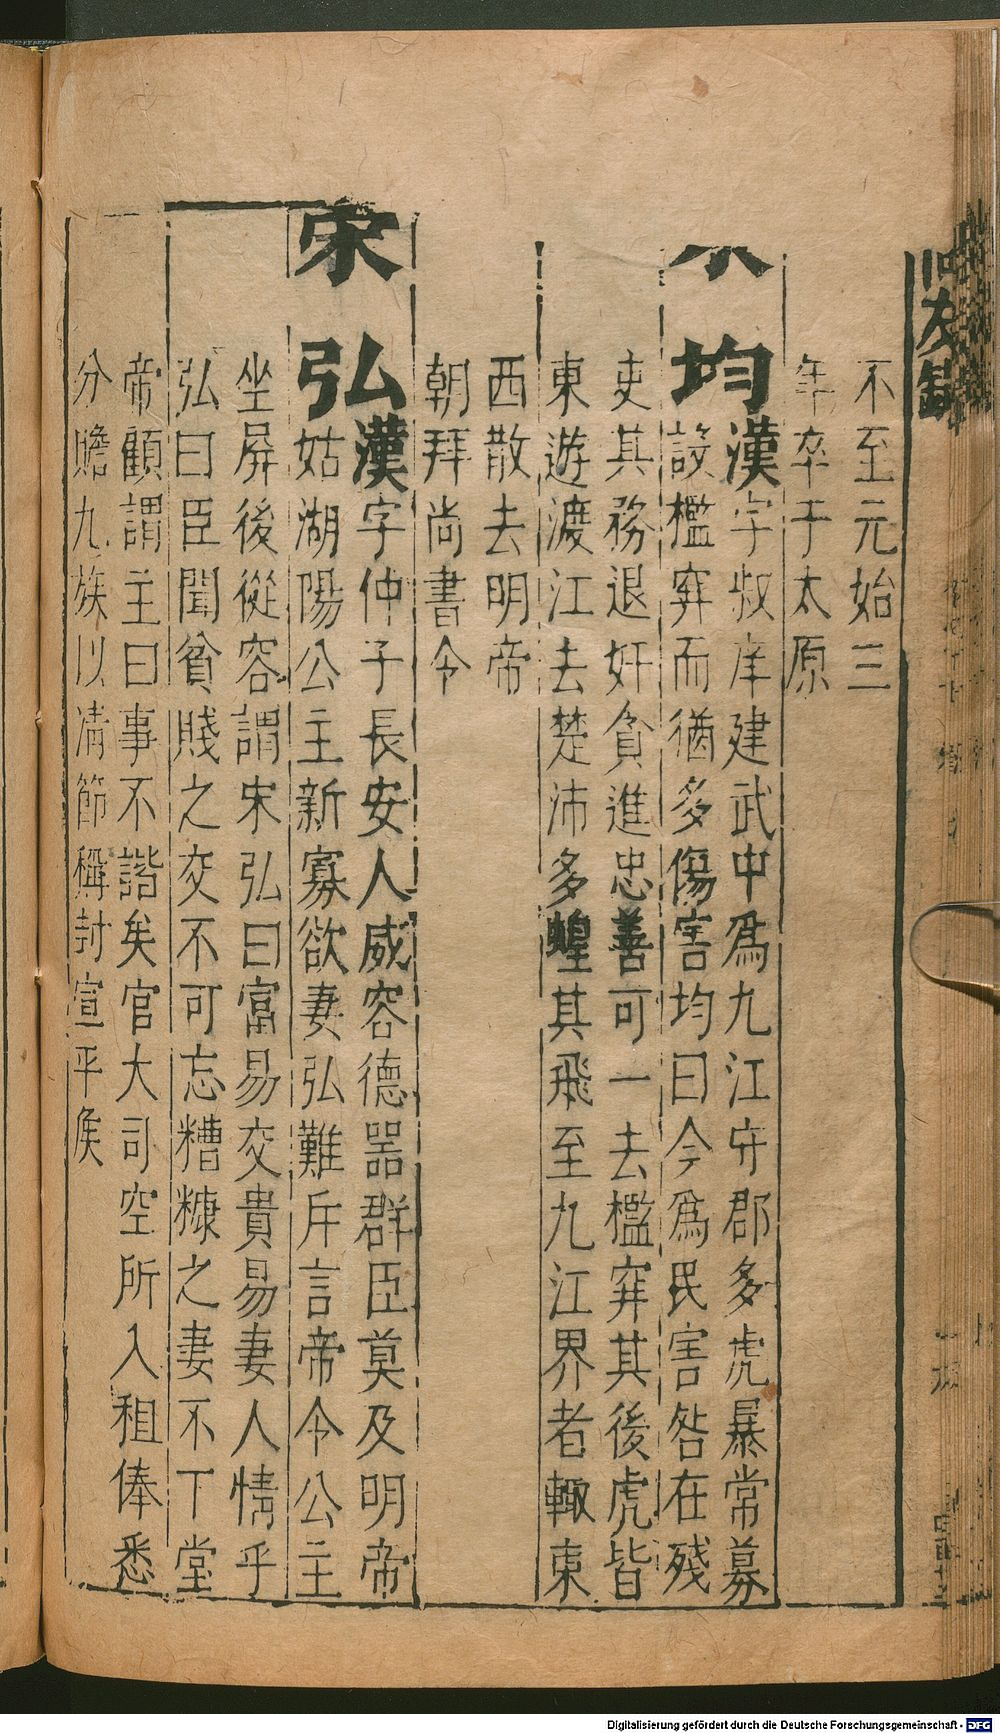 不至元始三
年卒于太原
均漢字叔庠建武中爲九江守郡多虎暴常募
設檻穽而猶多傷害均曰今爲民害咎在殘
吏其務退奸貪進忠善可一去檻穽其後虎皆
東遊渡江去楚沛多蝗其飛至九江界者輙東
西散去明帝
朝拜尚書令
宋弘漢字仲子長安人威容德器群臣莫及明帝
姑湖陽公主新寡欲妻弘難斥言帝令公主
坐屏後從容謂宋弘曰富易交貴易妻人情乎
弘曰臣聞貧賤之交不可忘糟糠之妻不下堂
帝顧謂主曰事不諧矣官大司空所入租俸悉
分贍九族以清節稱封宣平矦
Digitalisierung gefördert durch die Deutsche Forschungsgemeinschaft - DFG